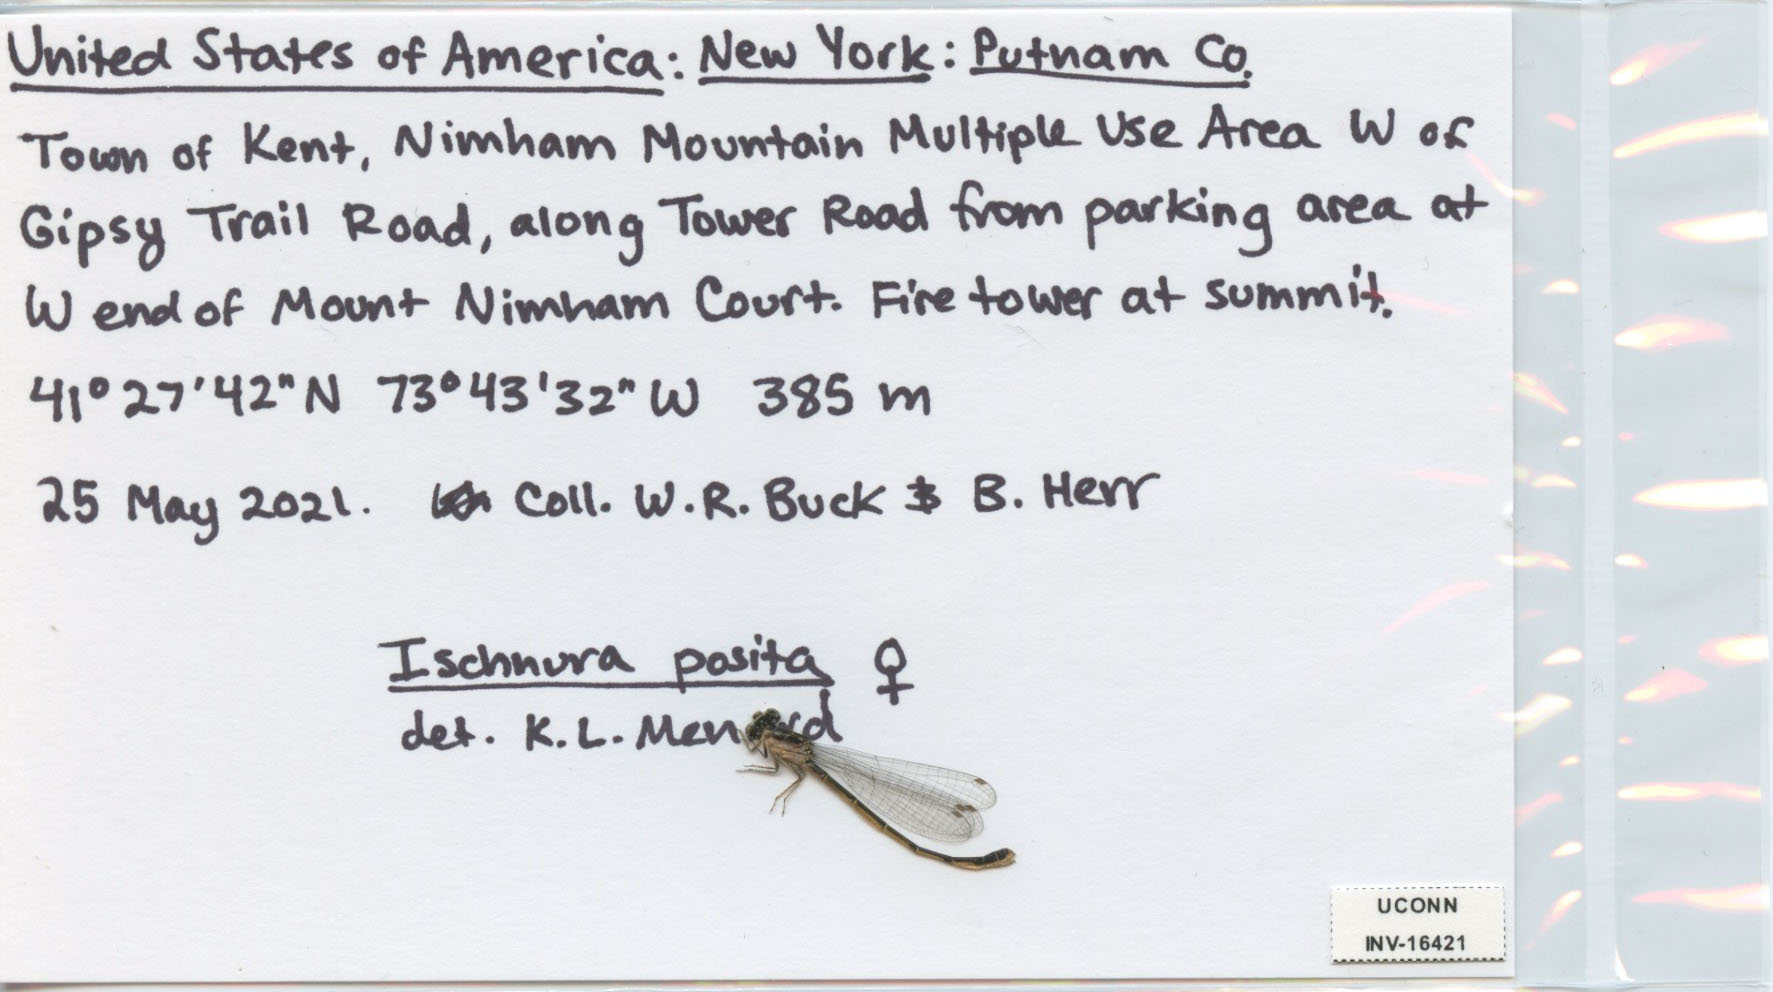 United States of America: New York: Putnam Co.
Town of Kent, Nimham Mountain Multiple Use Area W of
Gipsy Trail Road, along Tower Road from parking area at
W end of Mount Nimham Court. Fire tower at summit.
41°27'42"N 73°43'32"W 385 m
25 May 2021. Coll. W.R. Buck & B. Herr
Ischnura posita ♀
det. K.L. Menard
UCONN
INV-16421